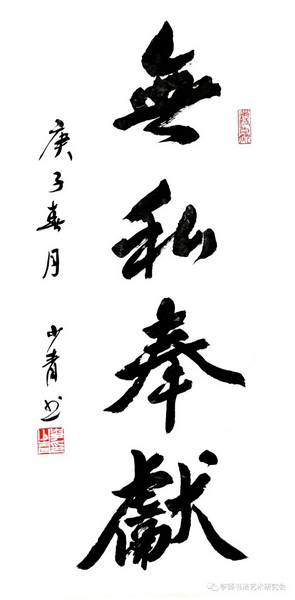 無私奉獻
庚子春月 少青书
李铎书法艺术研究会